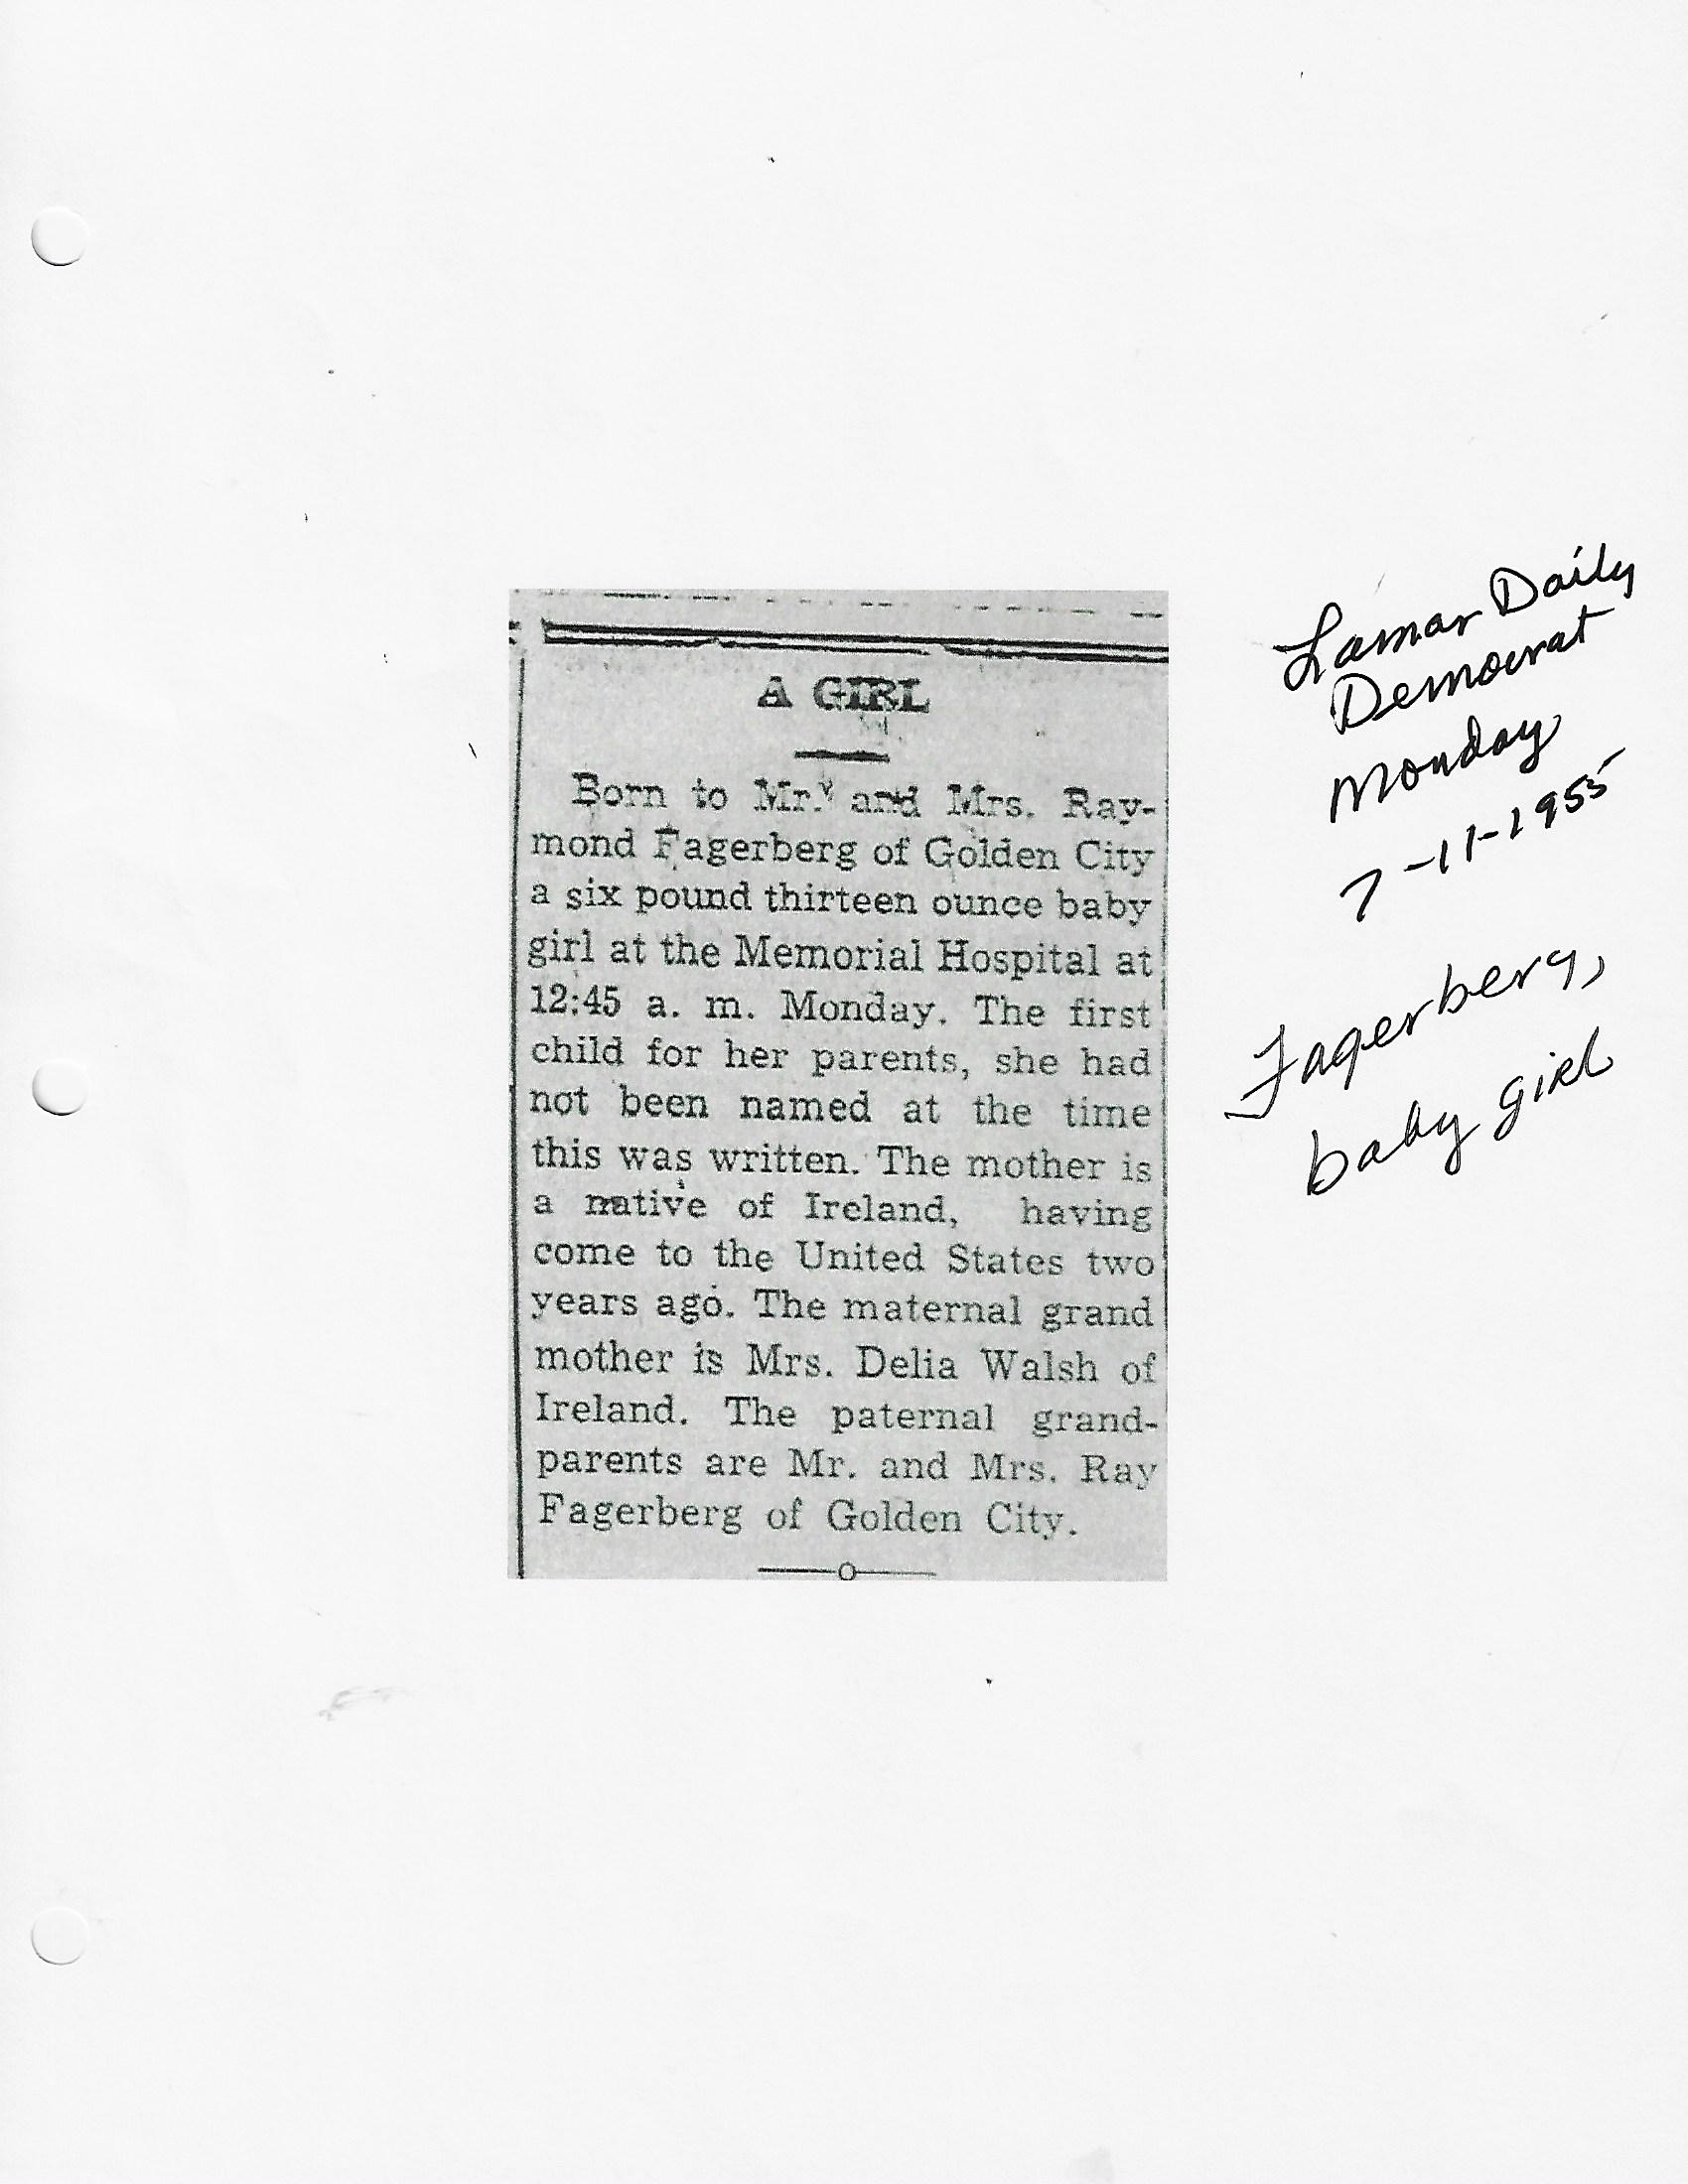 A GIRL
Born to Mr. and Mrs. Ray-
mond Fagerberg of Golden City
a six pound thirteen ounce baby
girl at the Memorial Hospital at
12:45 a. m. Monday. The first
child for her parents, she had
not been named at the time
this was written. The mother is
a native of Ireland, having
come to the United States two
years ago. The maternal grand
mother is Mrs. Delia Walsh of
Ireland. The paternal grand-
parents are Mr. and Mrs. Ray
Fagerberg of Golden City.
Lamar Daily
Democrat
Monday
7-11-1955
Fagerberg,
baby girl